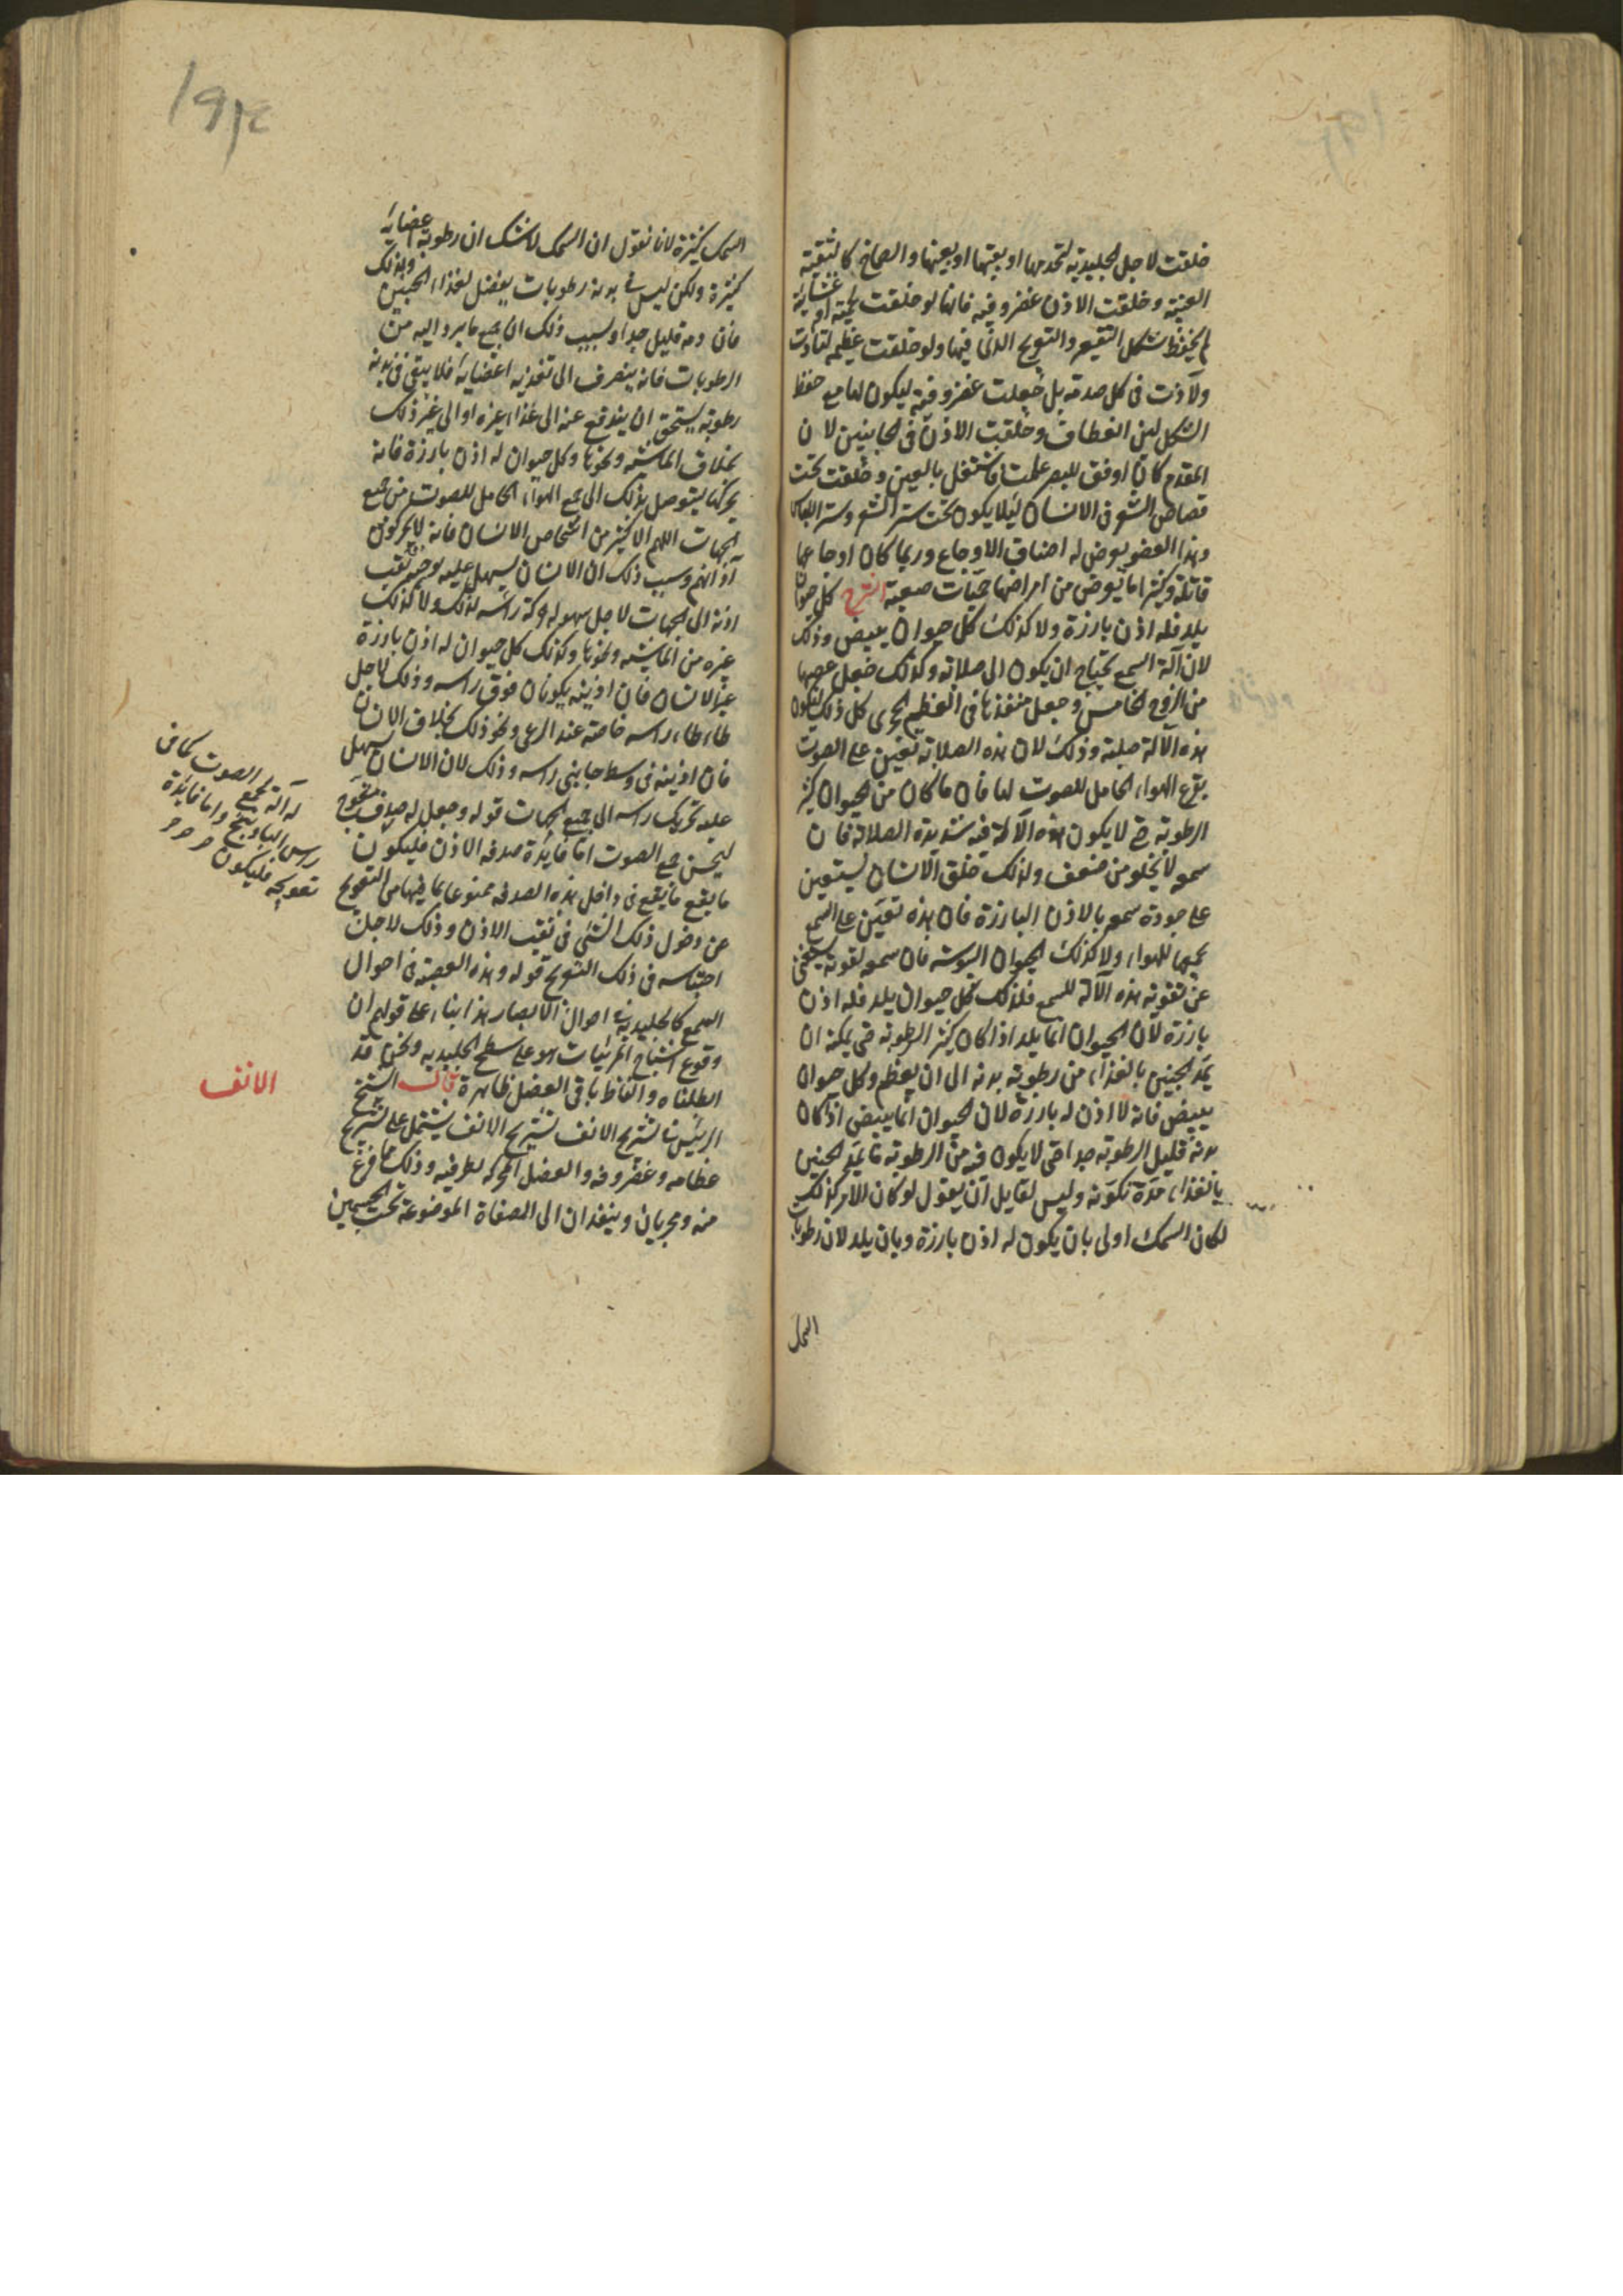 خلقت لاجل الجليدية لتخدمها او بقيتها او بعينها والصماخ كالثقبة
العنبية وخلقت الاذن غضروفية فانها لو خلقت لحمية او غشائية
لم يحفظ شكل التقعير والتعويج الذى فيها ولو خلقت عظمية لتأذت
ولآذت فى كل صدمة بل جعلت غضروفية ليكون لها مع حفظ
الشكل لين انعطاف وخلقت الاذن فى الجانبين لان
المقدم كان اوفق للبصر كما علمت فاشتغل بالعين وخلقت تحت
قصاص الشعر فى الانسان ليلا يكون تحت ستر الشعر وستر اللباس
وهذا العضو يعرض له اصناف الاوجاع وربما كان اوجاعها
قاتلة وكثيرا ما يعرض من امراضها حميات صعبة الشرح كل حيوان
يلد فله اذن بارزة ولا كذلك كل حيوان يبيض وذلك
لان آلة السمع يحتاج ان يكون الى صلابة وكذلك جعل عصبها
من الزوج الخامس وجعل منفذها فى العظم الحجرى كل ذلك لتكون
هذه الآلة صلبة وذلك لان هذه الصلابة تعين على الصوت
بقرع الهواء الحامل للصوت لها فان ما كان من الحيوان كثير
الرطوبة حتى لا يكون هذه الآلة فيه شديدة الصلابة فان
سمعه لا يخلو من ضعف ولذلك خلق الانسان ليستعين
على جودة سمعه بالاذن البارزة فان هذه تعين على السمع
بجمعها للهواء ولا كذلك الحيوان اليبوسته فان سمعه لقوته يستغنى
عن تقوية هذه الآلة للسمع فلذلك كل حيوان يلد فله اذن
بارزة لان الحيوان انما يلد اذا كان كثير الرطوبة حتى يمكنه ان
يمد الجنين بالغذاء من رطوبة بدنه الى ان يعظم وكل حيوان
يبيض فانه لا اذن له بارزة لان الحيوان انما يبيض اذا كان
بدنه قليل الرطوبة جدا حتى لا يكون فيه من الرطوبة ما يمد الجنين
بالغذاء مدة تكونه وليس لقايل ان يقول لو كان الامر كذلك
لكان السمك اولى بان يكون له اذن بارزة وبان يلد لان رطوبات
السمك
السمك كثيرة لانا نقول ان السمك لا شك ان رطوبة اعضايه
كثيرة ولكن ليس فى بدنه رطوبات يفضل لغذاء الجنين ولذلك
فان دمه قليل جدا وسبب ذلك ان جميع ما يرد اليه من
الرطوبات فانه ينصرف الى تغذية اعضايه فلا يبقى فى بدنه
رطوبة يستحق ان يندفع عنه الى غذاء غيره او الى غير ذلك
بخلاف الماشية ونحوها وكل حيوان له اذن بارزة فانه
يحركها ليتوصل بذلك الى جمع الهواء الحامل للصوت من جميع
الجهات اللهم الا كثير من اشخاص الانسان فانه لا يحركون
آذانهم وسبب ذلك ان الانسان يسهل عليه توجيه ثقب
اذنه الى الجهات لاجل سهولة حركة رأسه لذلك ولا كذلك
غيره من الماشية ونحوها وكذلك كل حيوان له اذن بارزة
غير الانسان فان اذنيه يكونان فوق راسه وذلك لاجل
طاطاء راسه خاصة عند الرعى ونحو ذلك بخلاف الانسان
فان اذنيه فى وسط جانبى راسه وذلك لان الانسان يسهل
عليه تحريك راسه الى جميع الجهات قوله وجعل له صدف معوج
ليحسن جمع الصوت اما فايدة صدفه الاذن فليكون
ما يقع ما يقع فى داخل هذه الصدفه ممنوعا بما فيها من التعويج
عن دخول ذلك الشئ فى ثقب الاذن وذلك لاجل
احتباسه فى ذلك التعويج قوله وهذه العصبة فى احوال
السمع كالجليدية فى احوال الابصار هذا بناء على قولهم ان
وقوع اشباح المرئيات هو على سطح الجليدية ونحن قد
ابطلناه والفاظ باقى الفصل ظاهرة قال الشيخ
الرئيس تشريح الانف تشريح الانف يشتمل على تشريح
عظامه وغضروفه والعضل المحركة لطرفيه وذلك مما فرغ
منه ومجريان وينفذان الى المصفاة الموضوعة تحت الجسمين
له آلة تجمع الصوت كما فى
راس الباذهنج واما فايدة
تعويجه فليكون
الانف